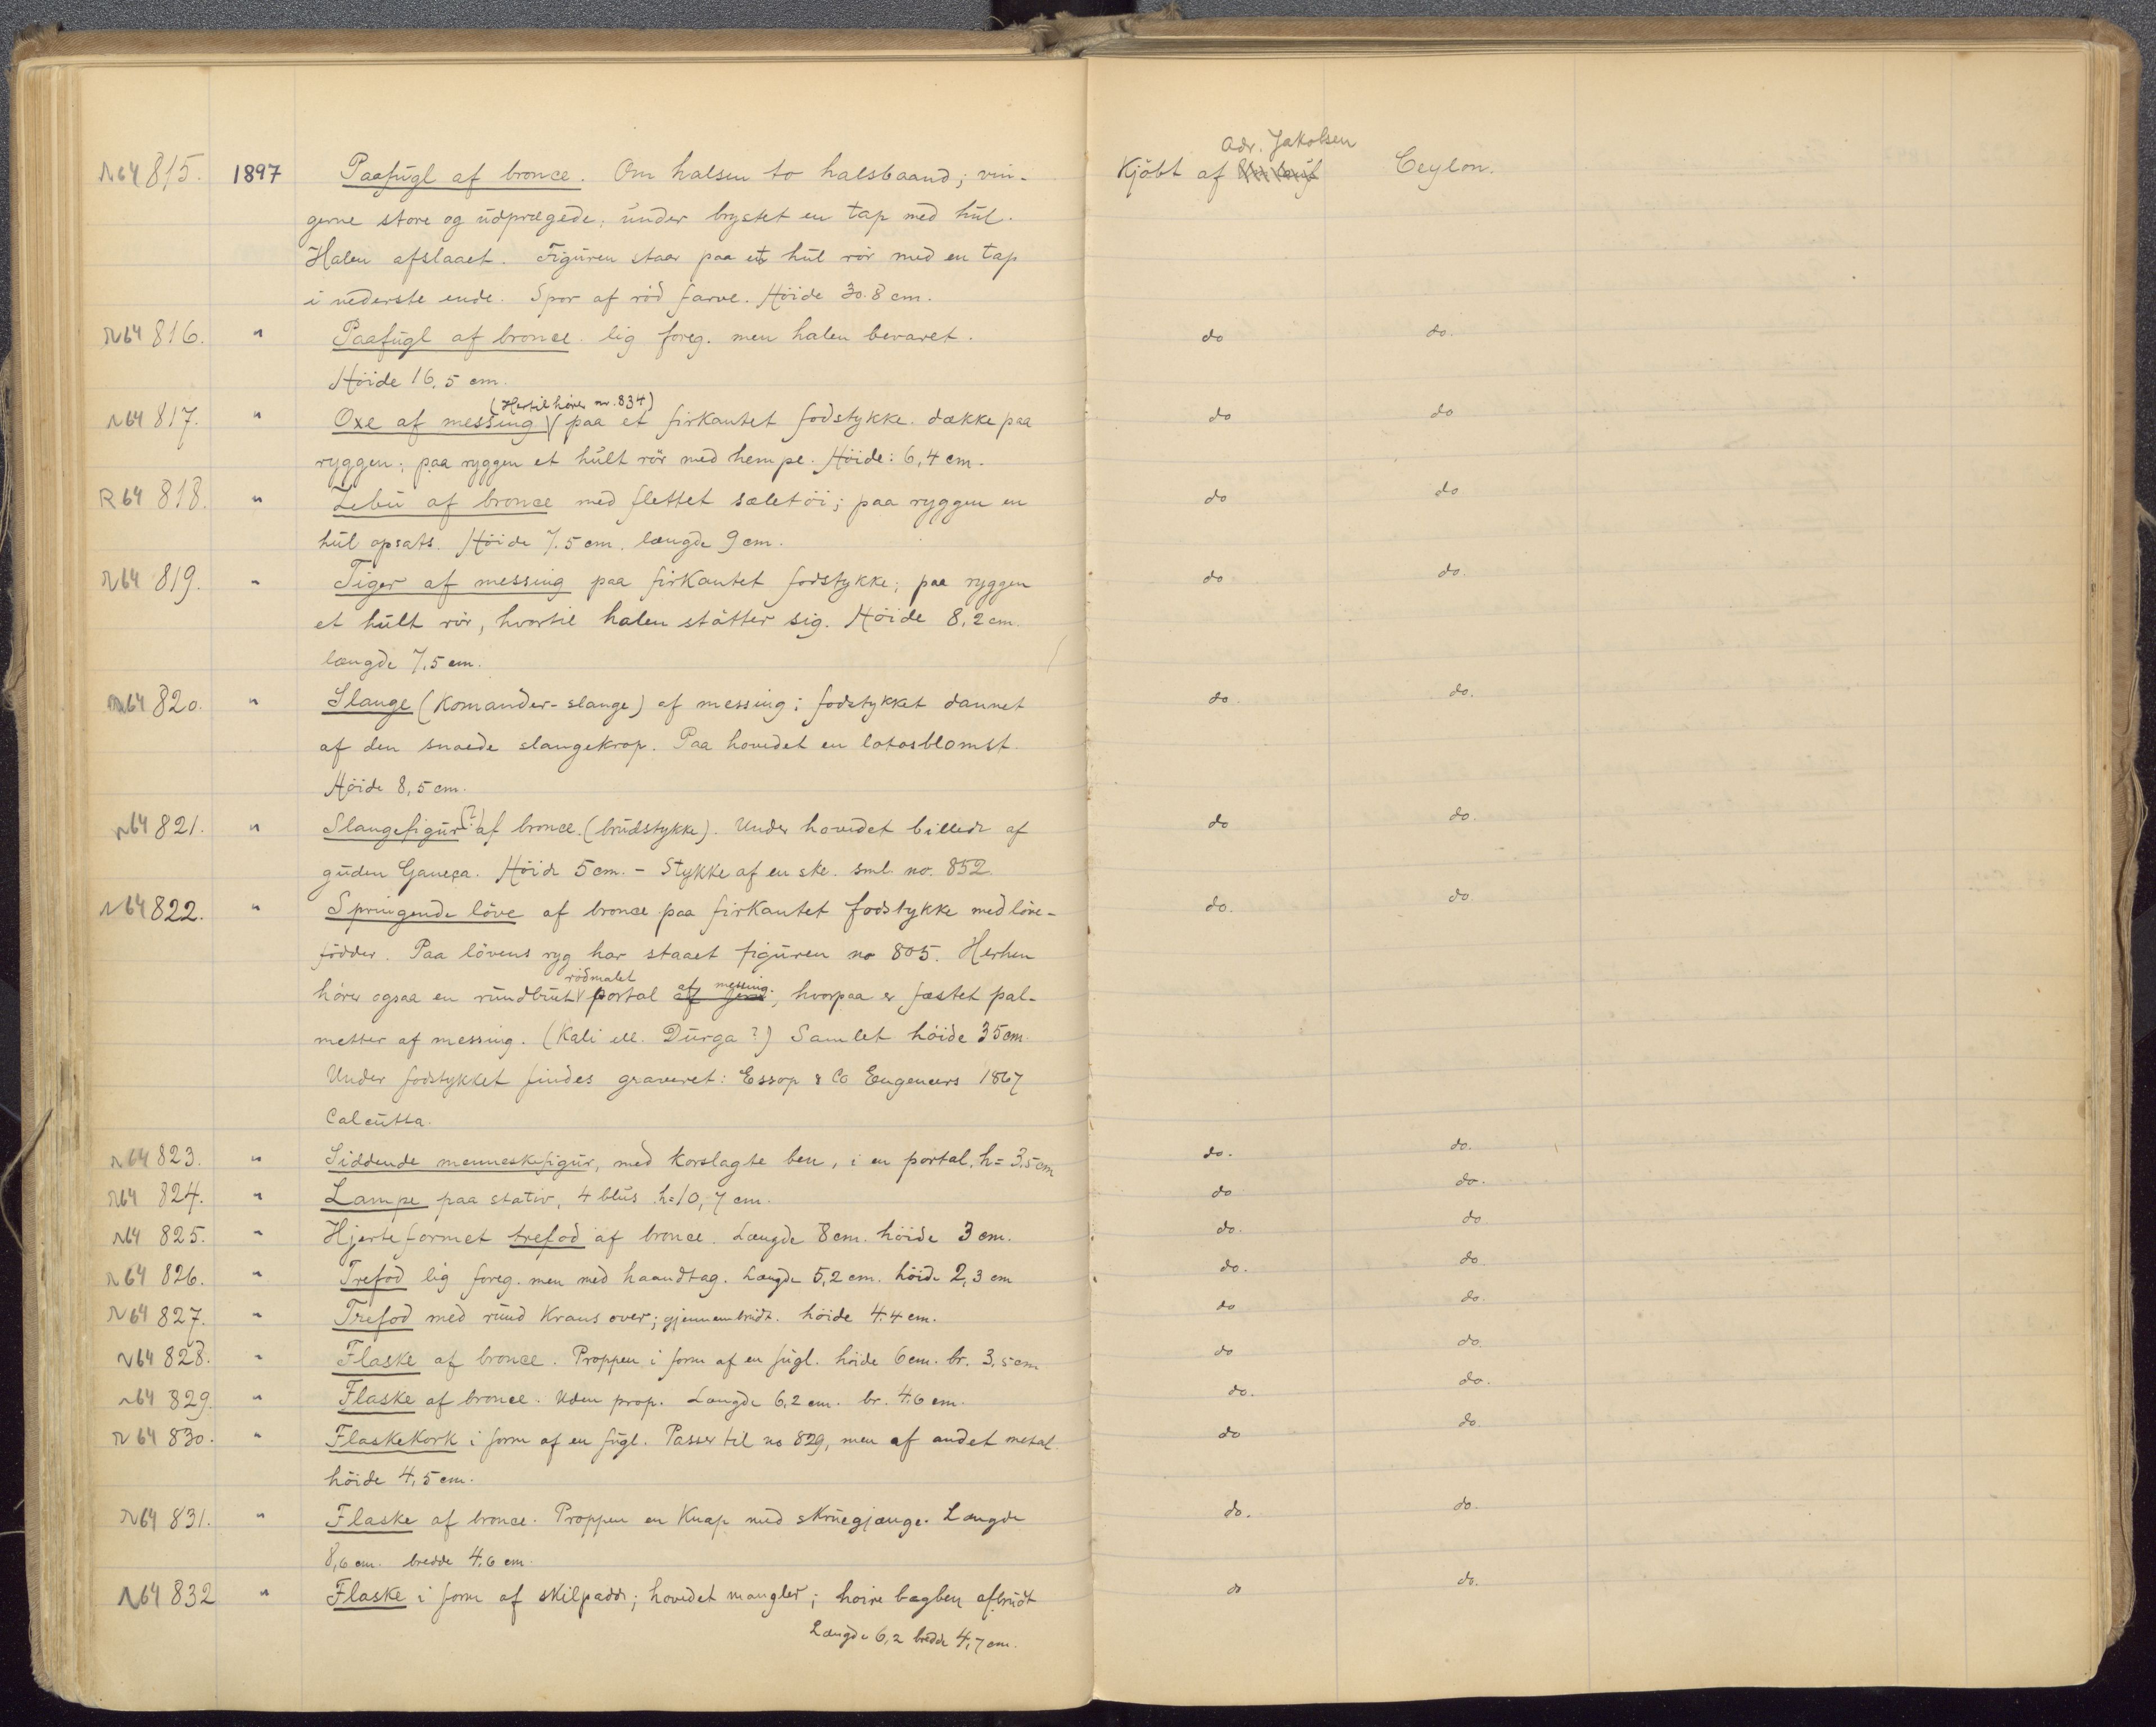 Adr. Jakobsen
N64 815. 1897 Paafugl af bronce. Om halsen to halsbaand; vin- Kjöbt af Ceylon.
gerne store og udprægede. under brystet en tap med hul.
Halen afslaaet. Figuren staar paa et hul rör med en tap
i nederste ende. Spor af röd farve. Höide 30.8 cm.
N64 816. " Paafugl af bronce. lig foreg. men halen bevaret. do do.
Höide 16,5 cm.
(Hertil hörer nr. 834)
N64 817. " Oxe af messing paa et firkantet fodstykke. dække paa do do
ryggen; paa ryggen et hult rör med hempe. Höide: 6,4 cm.
R64 818. " Zebu af bronce med flettet sæletöi; paa ryggen en do do
hul opsats. Höide 7.5 cm. længde 9 cm.
N64 819. " Tiger af messing paa firkantet fodstykke; paa ryggen do do.
et hult rör, hvortil halen stötter sig. Höide 8,2 cm.
længde 7,5 cm.
N64 820. " Slange (Komander-slange) af messing; fodstykket dannet do. do.
af den snoede slangekrop. Paa hovedet en lotosblomst.
Höide 8,5 cm.
N64 821. " Slangefigur (?) af bronce. (brudstykke). Under hovedet billede af do do.
guden Ganeça. Höide 5 cm. - Stykke af en ske. sml. no. 852
N64 822. " Springende löve af bronce paa firkantet fodstykke med löve- do. do.
födder. Paa lövens ryg har staaet figuren no 805. Herhen
rödmalet af messing.
hörer ogsaa en rundbuet portal af jern, hvorpaa er fæstet pal-
metter af messing. (Kali ell. Durga?) Samlet höide 35 cm.
Under fodstykket findes graveret: Essop & Co Engeneers 1867
Calcutta.
N64 823. " Siddende menneskefigur, med korslagte ben, i en portal. h= 3,5 cm do. do.
N64 824. " Lampe paa stativ, 4 blus h=10,7 cm. do do.
N64 825. " Hjerteformet trefod af bronce. Længde 8 cm. höide 3 cm. do. do.
N64 826. " Trefod lig foreg. men med haandtag. Længde 5,2 cm. höide 2,3 cm do. do
N64 827. " Trefod med rund Krans over; gjennembrudt. höide 4.4 cm. do do.
N64 828. " Flaske af bronce. Proppen i form af en fugl. höide 6 cm. br. 3,5 cm do do.
N64 829. " Flaske af bronce. Uden prop. Længde 6,2 cm. br. 4,6 cm. do. do.
N64 830. " Flaskekork i form af en fugl. Passer til no 829, men af andet metal. do do.
höide 4,5 cm.
N64 831. " Flaske af bronce. Proppen en Knap med skruegjænge. Længde do. do.
8,6 cm. bredde 4,6 cm.
N64 832 " Flaske i form af skilpadde; hovedet mangler; hoire bagben afbrudt do do.
Længde 6,2 bredde 4,7 cm.